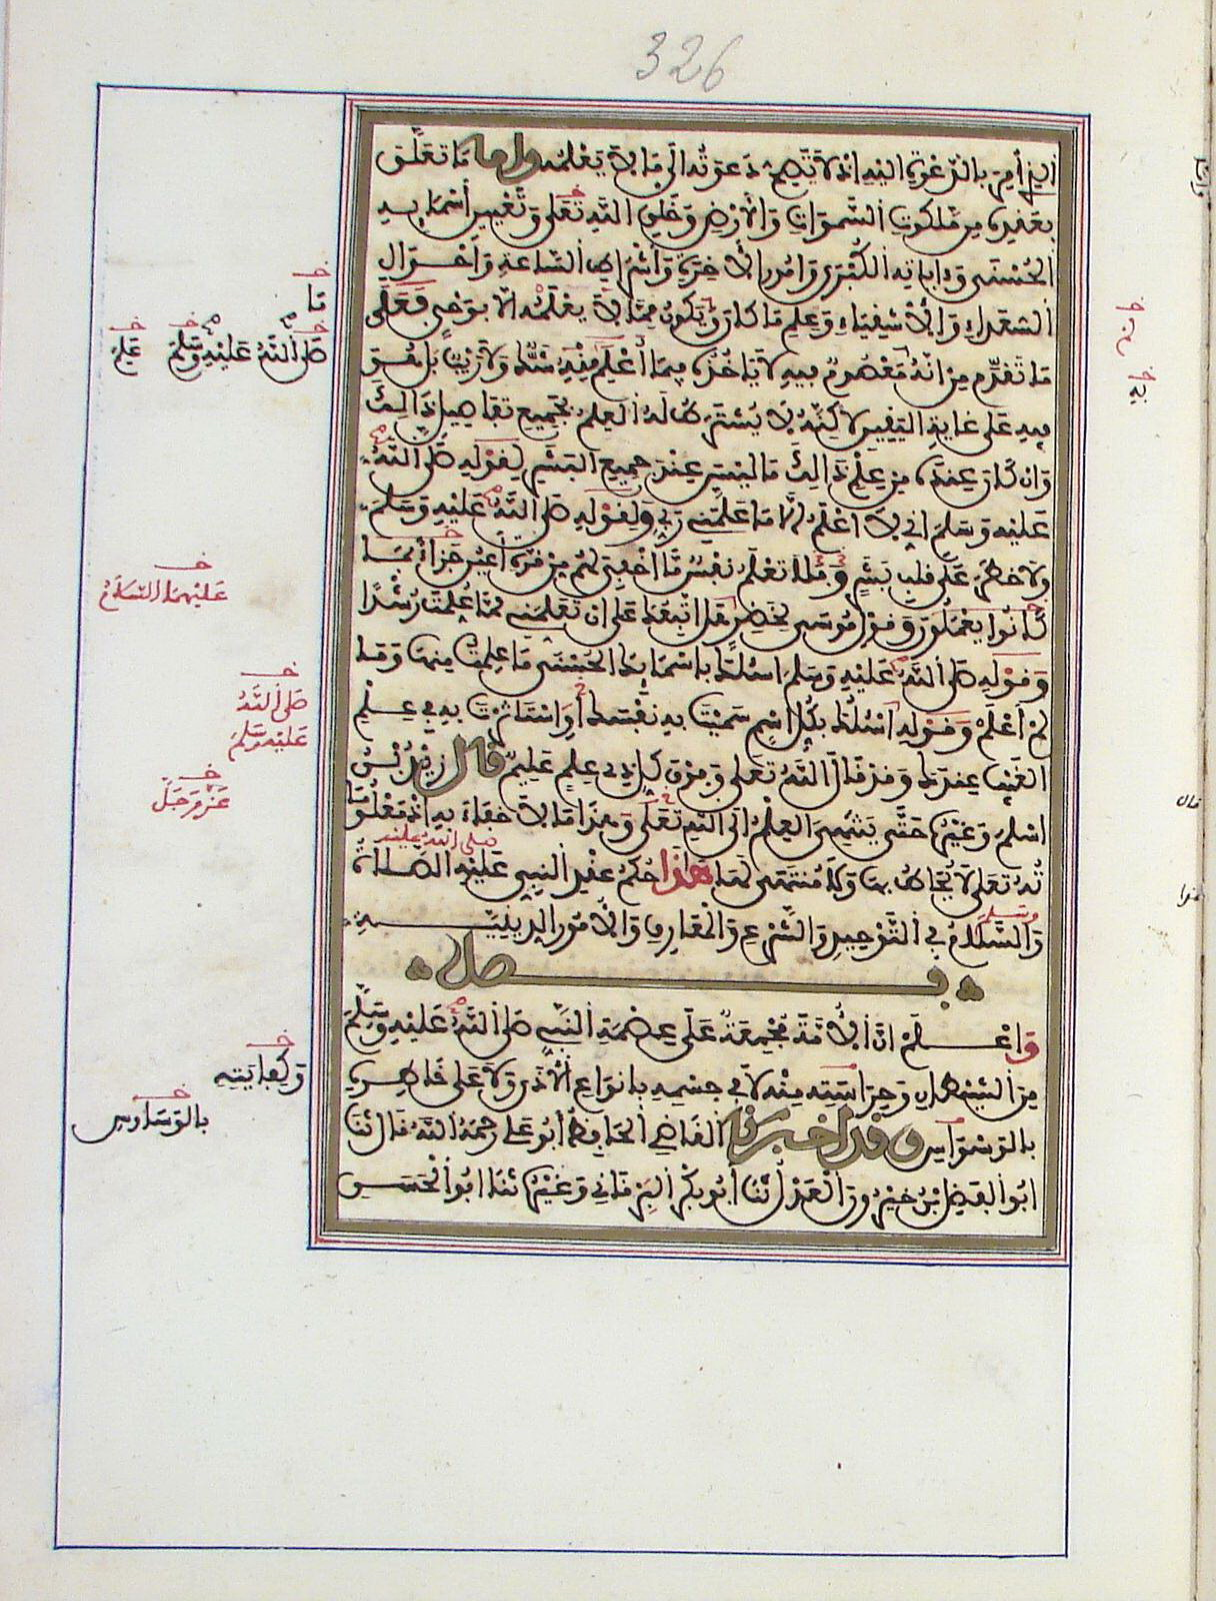 326
الذي أمر بالدعوة إليه إذ لا تصح دعوته إلى ما لا يعلمه وأما ما تعلق
بعقده من ملكوت السموات والأرض وخلق الله تعلى وتعيين أسمائه
الحسنى وءاياته الكبرى وأمور الآخرة وأشراط الساعة وأحوال
السعداء والأشقياء وعلم ما كان ويكون مما لا يعلمه إلا بوحي فعلى
ما تقدم من أنه معصوم فيه لا يأخذه فيما أعلم منه شك ولا ريب بل هو
فيه على غاية اليقين لاكنه لا يشترط له العلم بجميع تفاصيل ذالك
وإن كان عنده من علم ذالك ما ليس عند جميع البشر لقوله صلى الله
عليه وسلم إني لا أعلم إلا ما علمني ربي ولقوله صلى الله عليه وسلم
ولا خطر على قلب بشر فلا تعلم نفس ما أخفي لهم من قرة أعين جزاء بما
كانوا يعملون وقول موسى للخضر هل أتبعك على أن تعلمني مما علمت رشدا
وقوله صلى الله عليه وسلم أسئلك بأسمائك الحسنى ما علمت منها وما
لم أعلم وقوله أسئلك بكل اسم سميت به نفسك أو استأثرت به في علم
الغيب عندك وقد قال الله تعلى وفوق كل ذي علم عليم قال زيد بن
أسلم وغيره حتى ينتهي العلم إلى الله تعلى وهذا ما لا خفاء به إذ معلوما
ته تعلى لا يحاط بها ولا منتهى لها هذا حكم عقد النبي عليه الصلاة
صلى الله عليه
والسلام في التوحيد والشرع والمعارف والأمور الدينية
وسلم
فصل
واعلم أن الأمة مجمعة على عصمة النبي صلى الله عليه وسلم
من الشيطان وحراسته منه لا في جسمه بأنواع الأذى ولا على خاطره
بالوسواس وقد أخبرنا القاضي الحافظ أبو علي رحمه الله قال ثنا
أبو الفضل بن خيرون العدل ثنا أبو بكر البرقاني وغيره ثنا أبو الحسن
خـ
ما
خـ
صلى الله عليه وسلم
خـ
علم
خـ
عليهما السلام
خـ
صلى الله
عليه وسلم
خـ
عز وجل
خـ
وكفايته
خـ
بالوساوس